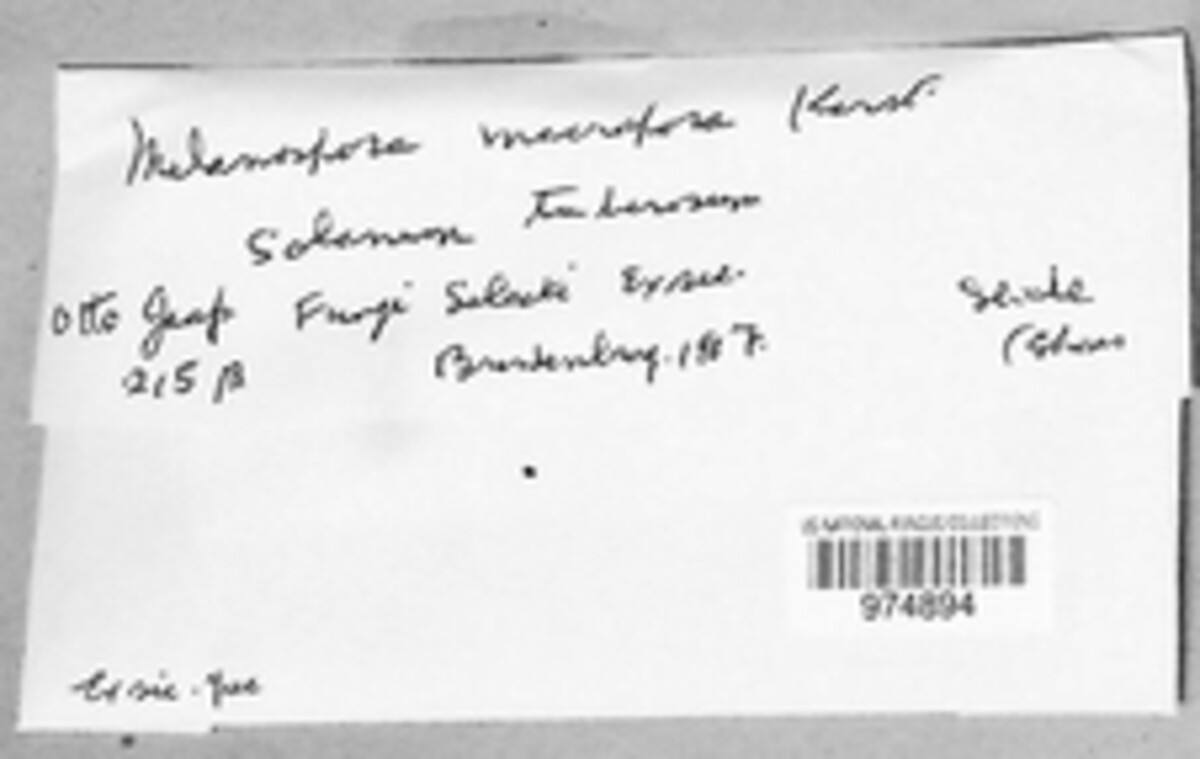 Melanospora macrospora Karst.
Solanum tuberosum
Otto Jaap Fungi Selecti Exsic.
215 β Brandenburg.
Slide
US NATIONAL FUNGUS COLLECTIONS
974894
Exsic.